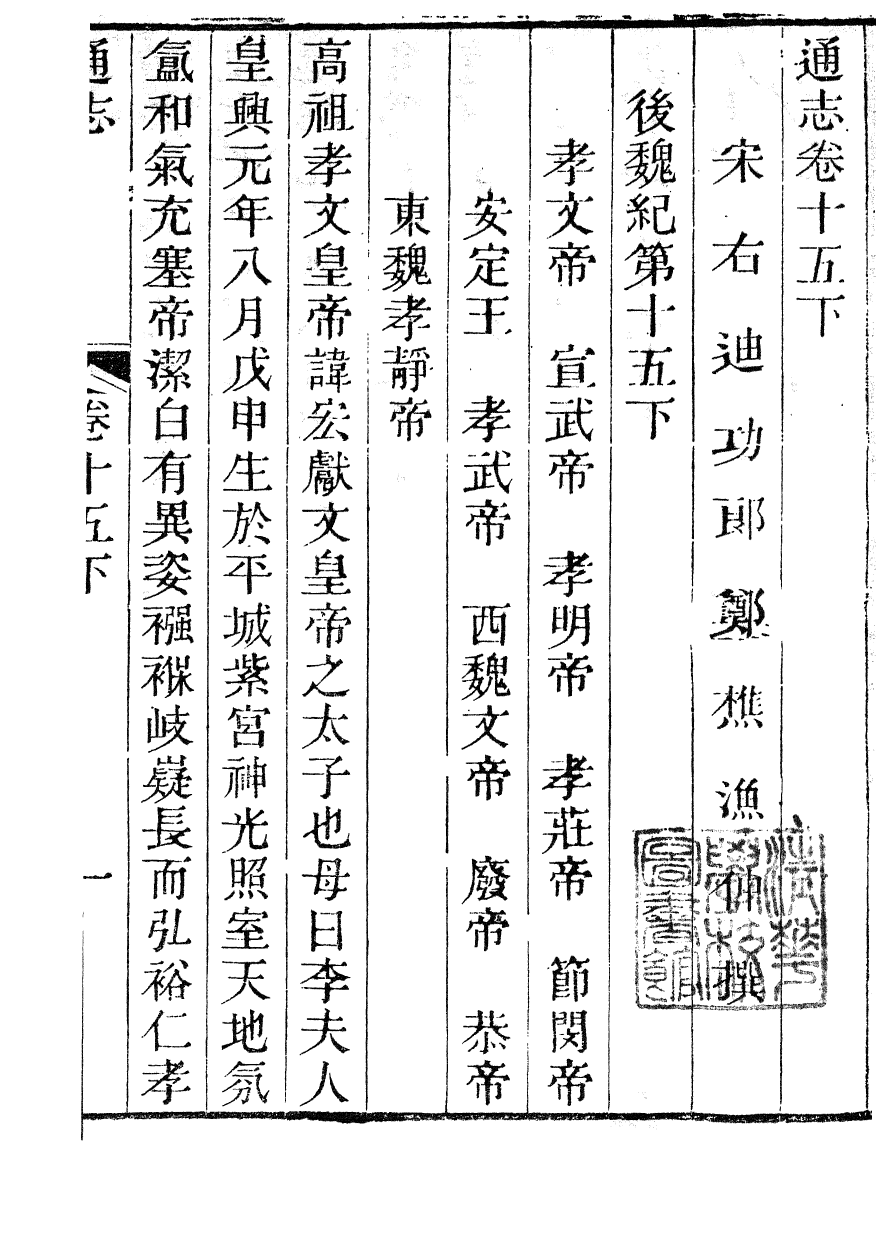 通志卷十五下
宋右迪功郎鄭樵漁仲撰
後魏紀第十五下
孝文帝　宣武帝　孝明帝　孝莊帝　節閔帝
安定王　孝武帝　西魏文帝　廢帝　恭帝
東魏孝靜帝
高祖孝文皇帝諱宏獻文皇帝之太子也母曰李夫人
皇興元年八月戊申生於平城紫宮神光照室天地氛
氳和氣充塞帝潔白有異姿襁褓岐嶷長而弘裕仁孝
通志　卷十五下　一
清華學校圖書館